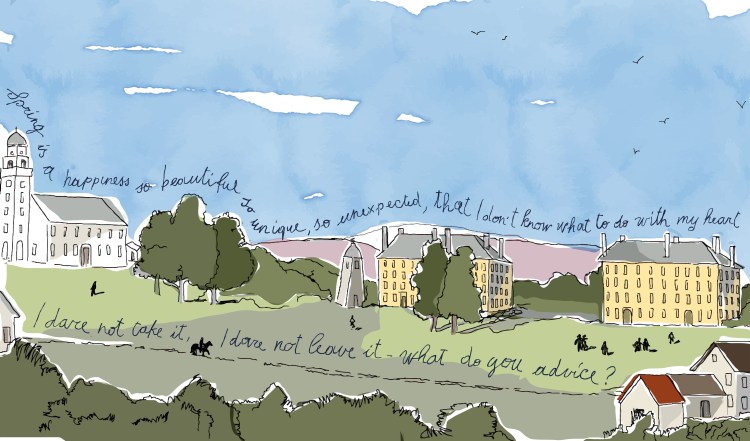 Spring is a happiness so beautiful so unique, so unexpected, that I don't know what to do with my heart
I dare not take it, I dare not leave it - what do you advice?